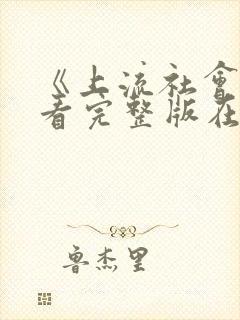 《上流社會
看完整版在
魯杰里